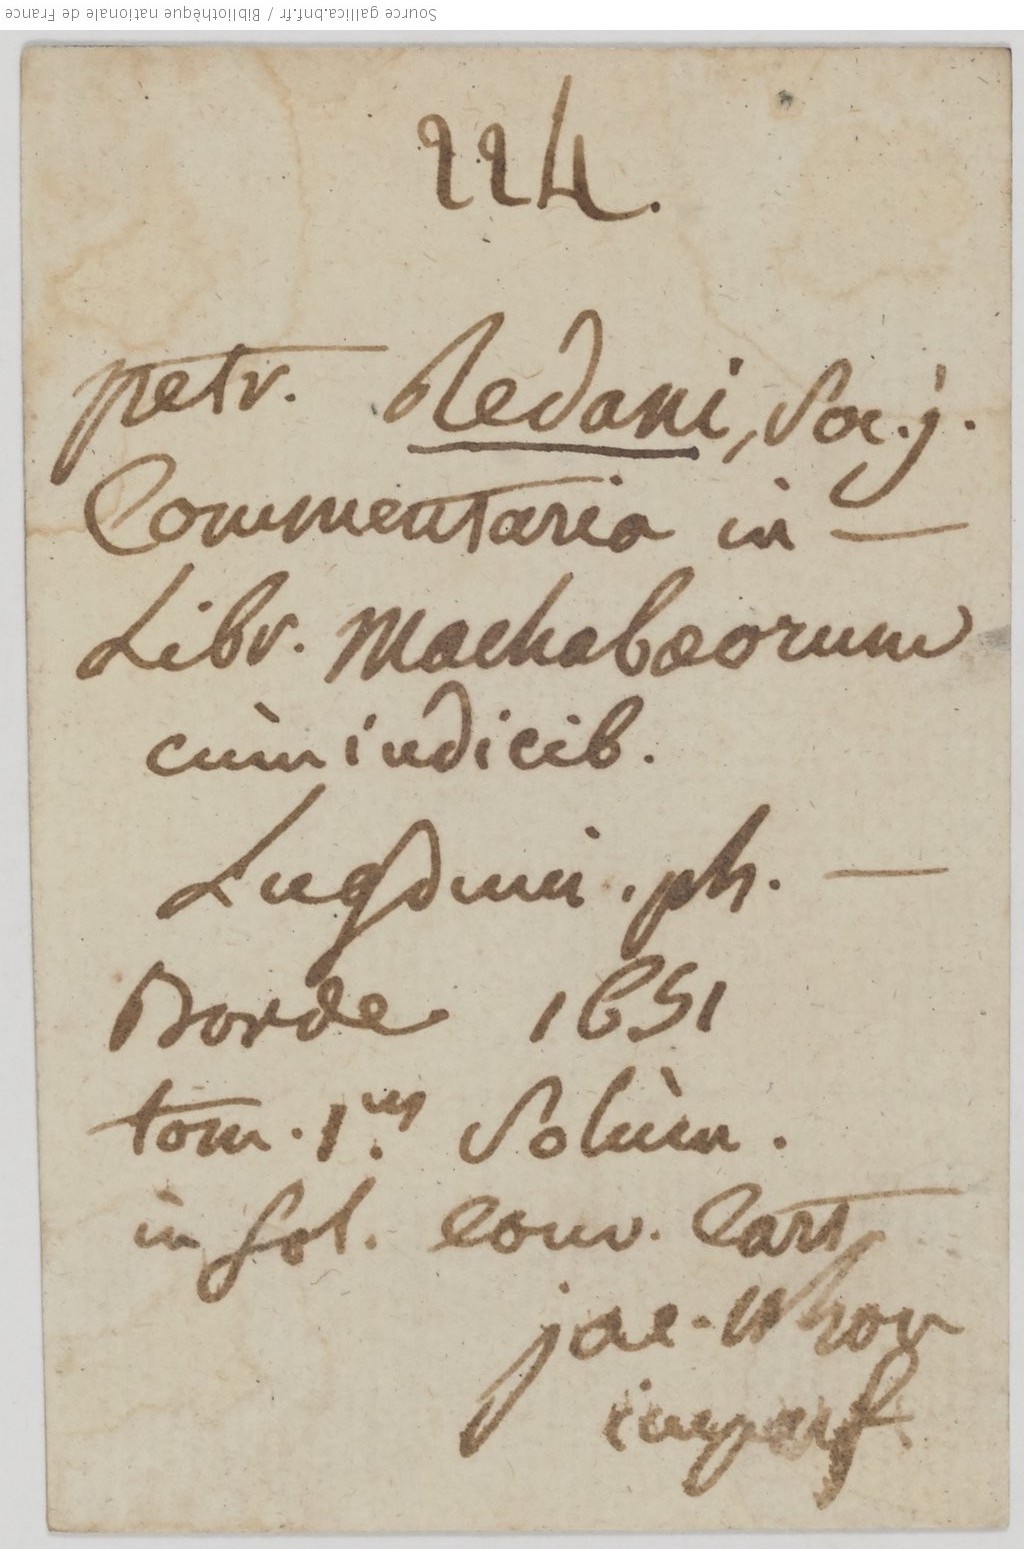 Source gallica.bnf.fr / Bibliothèque nationale de France
224.
petr. Redani, Soc. j.
Commentaria in —
Libr. Machabæorum
cùm indicib.
Lugduni. ph. —
Borde 1651
tom. 1.us Solùm.
in fol. Couv. Cart
jac.
imparf